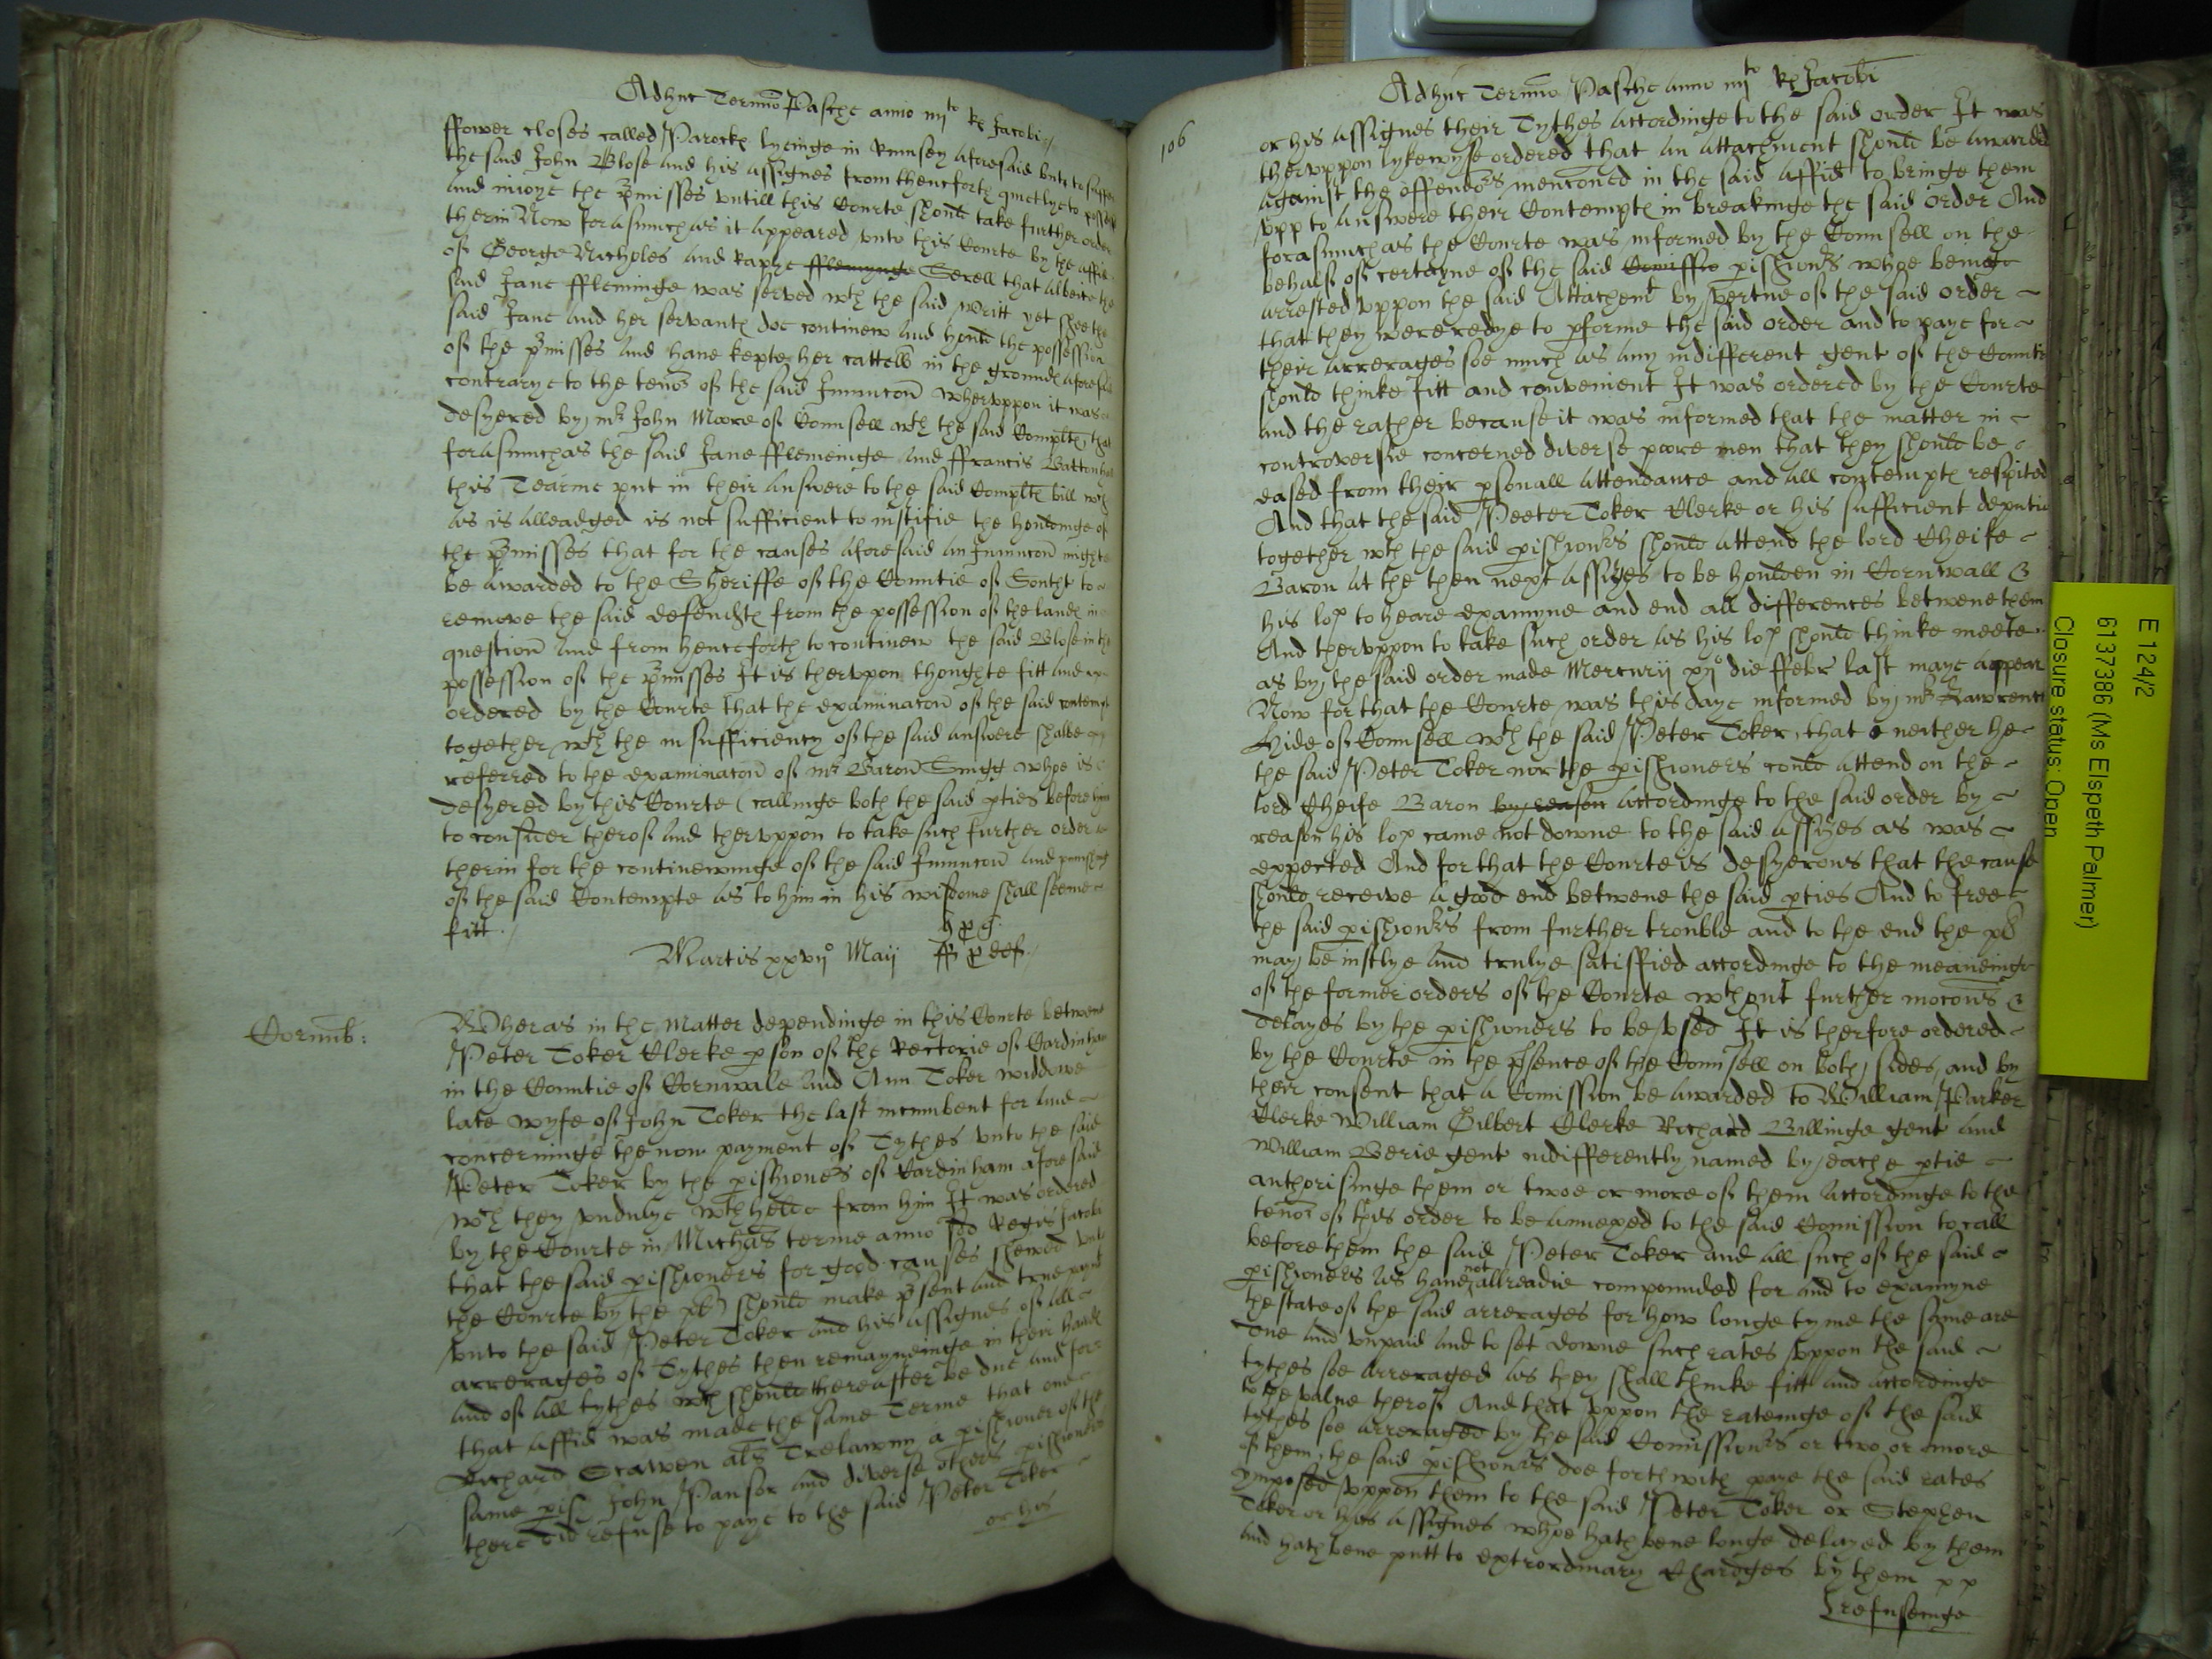 Adhuc Termino Pasche anno iiij^to R Jacobi
ffower closes called Parock lyeinge in Rumsey aforesaid but to suffer
the said John Blose and his assignes from thencforth quietlye to possesse
and inioye the p̄misses untill this Courte should take further order
therin Now forasmuch as it appeared unto this Courte by the affid
of George Nicholes and Raphe fflemynge Serell that albeit the
said Jane ffleminge was served wth the said writt yet shee the
said Jane and her servants doe continew and hould the possession
of the p̄misses and have kepte her cattell in the grounds aforesaid
contrarye to the tenor of the said Iniunccon wheruppon it was
desyered by mr John Moore of Counsell wth the said Complt that
forasmuch as the said Jane fflemeinge and ffrancis Batton
this Tearme put in their answere to the said Complts bill wch
as is alleadged is not sufficient to iustifie the houldinge of
the p̄misses that for the causes aforesaid an Iniunccon mighte
be awarded to the Sheriffe of the Countie of Southt to
remove the said defendts from the possession of the lands in
question and from henceforth to continew the said Blose in the
possession of the p̄misses It is theruppon thoughte fitt and
ordered by the Courte that the examinacon of the said contempt
together wth the insufficiency of the said answere shalbe
referred to the examinacon of mr Baron Snigg whoe is
desyered by this Courte (callinge both the said pties before him
to consider therof and theruppon to take such further order
therin for the continewinge of the said Iniunccon and punishing
of the said Contempte as to him in his wisdome shall seeme
fitt.
h p q.
Martis xxvij° Maij ff p def.
Cornub:
Wheras in the Matter dependinge in this Courte betwene
Peter Toker Clerke pson of the Rectorie of Cardinham
in the Countie of Cornwale and Ann Toker widdowe
late wyfe of John Toker the last incumbent for and
concerninge the non payment of Tythes unto the said
Peter Toker by the pishioners of Cardinham aforesaid
wch they undulye wthhelde from him It was ordered
by the Courte in Michas terme anno Regis Jacobi
that the said pishioners for good causes shewed unto
the Courte by the plt should make p̄sent and true paymt
unto the said Peter Toker and his assignes of all
arrerages of Tythes then remayneinge in their hands
and of all tythes wch should thereafter be due and for
that affid was made the same Terme that one
Richard Scawen als Trelawny a pishioner of the
same pish John Pansor and diverse others pishioners
there did refuse to paye to the said Peter Toker
or his
106
Adhuc Termino Pasche anno iiij^to R Jacobi
or his assignes their Tythes accordinge to the said order It was
theruppon lykewyse ordered that an attachment should be awarded
against the offendors mencioned in the said affid to bringe them
upp to answere their Contempts in breakinge the said order And
forasmuch as the Courte was informed by the Counsell on the
behalf of certayne of the said Comissio pishioners whoe beinge
arrested uppon the said Attachemt by vertue of the said order
that they were redye to pforme the said order and to paye for
their arrerages soe much as any indifferent gent of the Countie
should thinke fitt and convenient It was ordered by the Courte
and the rather because it was informed that the matter in
controversie concerned diverse poore men that they should be
eased from their psonall attendance and all contempts respited
And that the said Peeter Toker Clerke or his sufficient deputie
together wth the said pishioners should attend the lord Cheife
Baron at the then next assizes to be houlden in Cornwall &
his lop to heare examyne and end all differences betwene them
And theruppon to take such order as his lop should thinke meete
as by the said order made Mercurij xij° die ffebr last maye appear
Now for that the Courte was this daye informed by mr Lawrence
Hide of Counsell wth the said Peter Toker, that neither he
the said Peter Toker nor the pishioners could attend on the
lord Cheife Baron by reason accordinge to the said order by
reason his lop came not downe to the said assizes as was
expected And for that the Courte is desyerous that the cause
should receive a good end betwene the said pties And to free
the said pishioners from further trouble and to the end the plt
may be iustlye and trulye satisfied accordinge to the meaneinge
of the former orders of the Courte wthout further mocons &
delayes by the pishioners to be used It is therfore ordered
by the Courte in the p̄sence of the Counsell on both sides, and by
their consent that a Comission be awarded to William Parker
Clerke William Gilbert Clerke Richard Billinge gent and
William Verie gent indifferently named by eache ptie
authorisinge them or twoe or more of them accordinge to the
tenor of this order to be annexed to the said Comission to call
before them the said Peter Toker and all such of the said
pishioners as have not allreadie compounded for and to examyne
the state of the said arrerages for how longe tyme the same are
due and unpaid and to set downe such rates uppon the said
tythes soe arreraged as they shall thinke fitt and accordinge
to the value therof And that uppon the rateinge of the said
tythes soe arreraged by the said Comissioners or two or more
of them, the said pishioners doe forthwith paye the said rates
ymposed uppon them to the said Peter Toker or Stephen
Toker or his assignes whoe hath bene longe delayed by them
and hath bene putt to extrordinary Chardges by them
refuseinge
E 124/2
6137386 (Ms Elspeth Palmer)
Closure status: Open